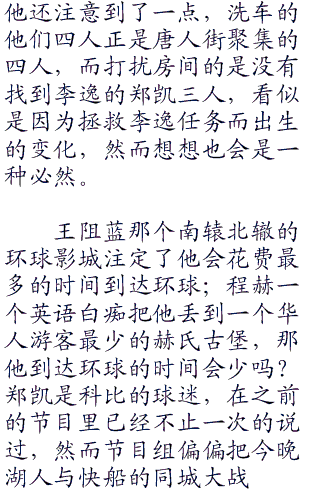 他还注意到了一点，洗车的
他们四人正是唐人街聚集的
四人，而打扰房间的是没有
找到李逸的郑凯三人，看似
是因为拯救李逸任务而出生
的变化，然而想想也会是一
种必然。
王阻蓝那个南辕北辙的
环球影城注定了他会花费最
多的时间到达环球；程赫一
个英语白痴把他丢到一个华
人游客最少的赫氏古堡，那
他到达环球的时间会少吗？
郑凯是科比的球迷，在之前
的节目里已经不止一次的说
过，然而节目组偏偏把今晚
湖人与快船的同城大战